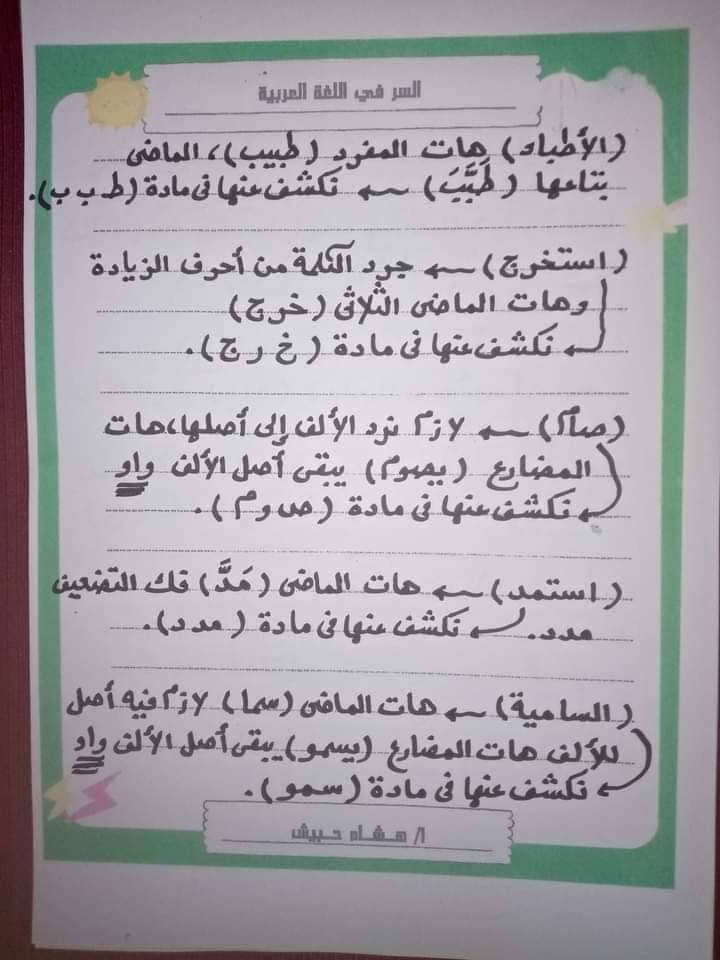 السر في اللغة العربية
(الأطباء) هات المفرد (طبيب)، الماضى
بتاعها (طَبَّبَ) ← نكشف عنها فى مادة (ط ب ب).
(استخرج) ← جرد الكلمة من أحرف الزيادة
وهات الماضى الثلاثى (خرج)
← نكشف عنها فى مادة (خ ر ج).
(صام) ← لازم نرد الألف إلى أصلها، هات
المضارع (يصوم) يبقى أصل الألف واو
← نكشف عنها فى مادة (ص و م).
(استمد) ← هات الماضى (مَدَّ) فك التضعيف
مدد. ← نكشف عنها فى مادة (مدد).
(السامية) ← هات الماضى (سما) لازم فيه أصل
للألف هات المضارع (يسمو) يبقى أصل الألف واو
← نكشف عنها فى مادة (سمو).
أ/ هشام حبيش